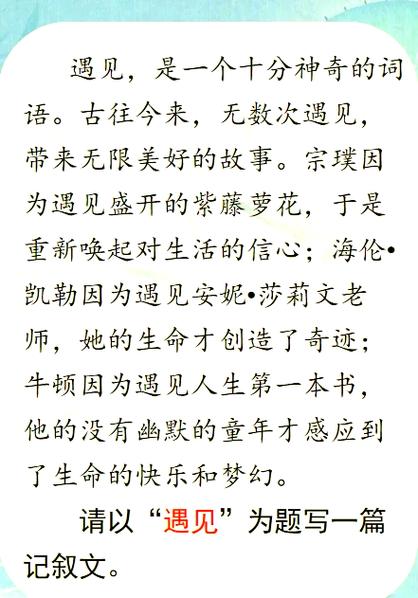 遇见，是一个十分神奇的词
语。古往今来，无数次遇见，
带来无限美好的故事。宗璞因
为遇见盛开的紫藤萝花，于是
重新唤起对生活的信心；海伦•
凯勒因为遇见安妮•莎莉文老
师，她的生命才创造了奇迹；
牛顿因为遇见人生第一本书，
他的没有幽默的童年才感应到
了生命的快乐和梦幻。
请以“遇见”为题写一篇
记叙文。